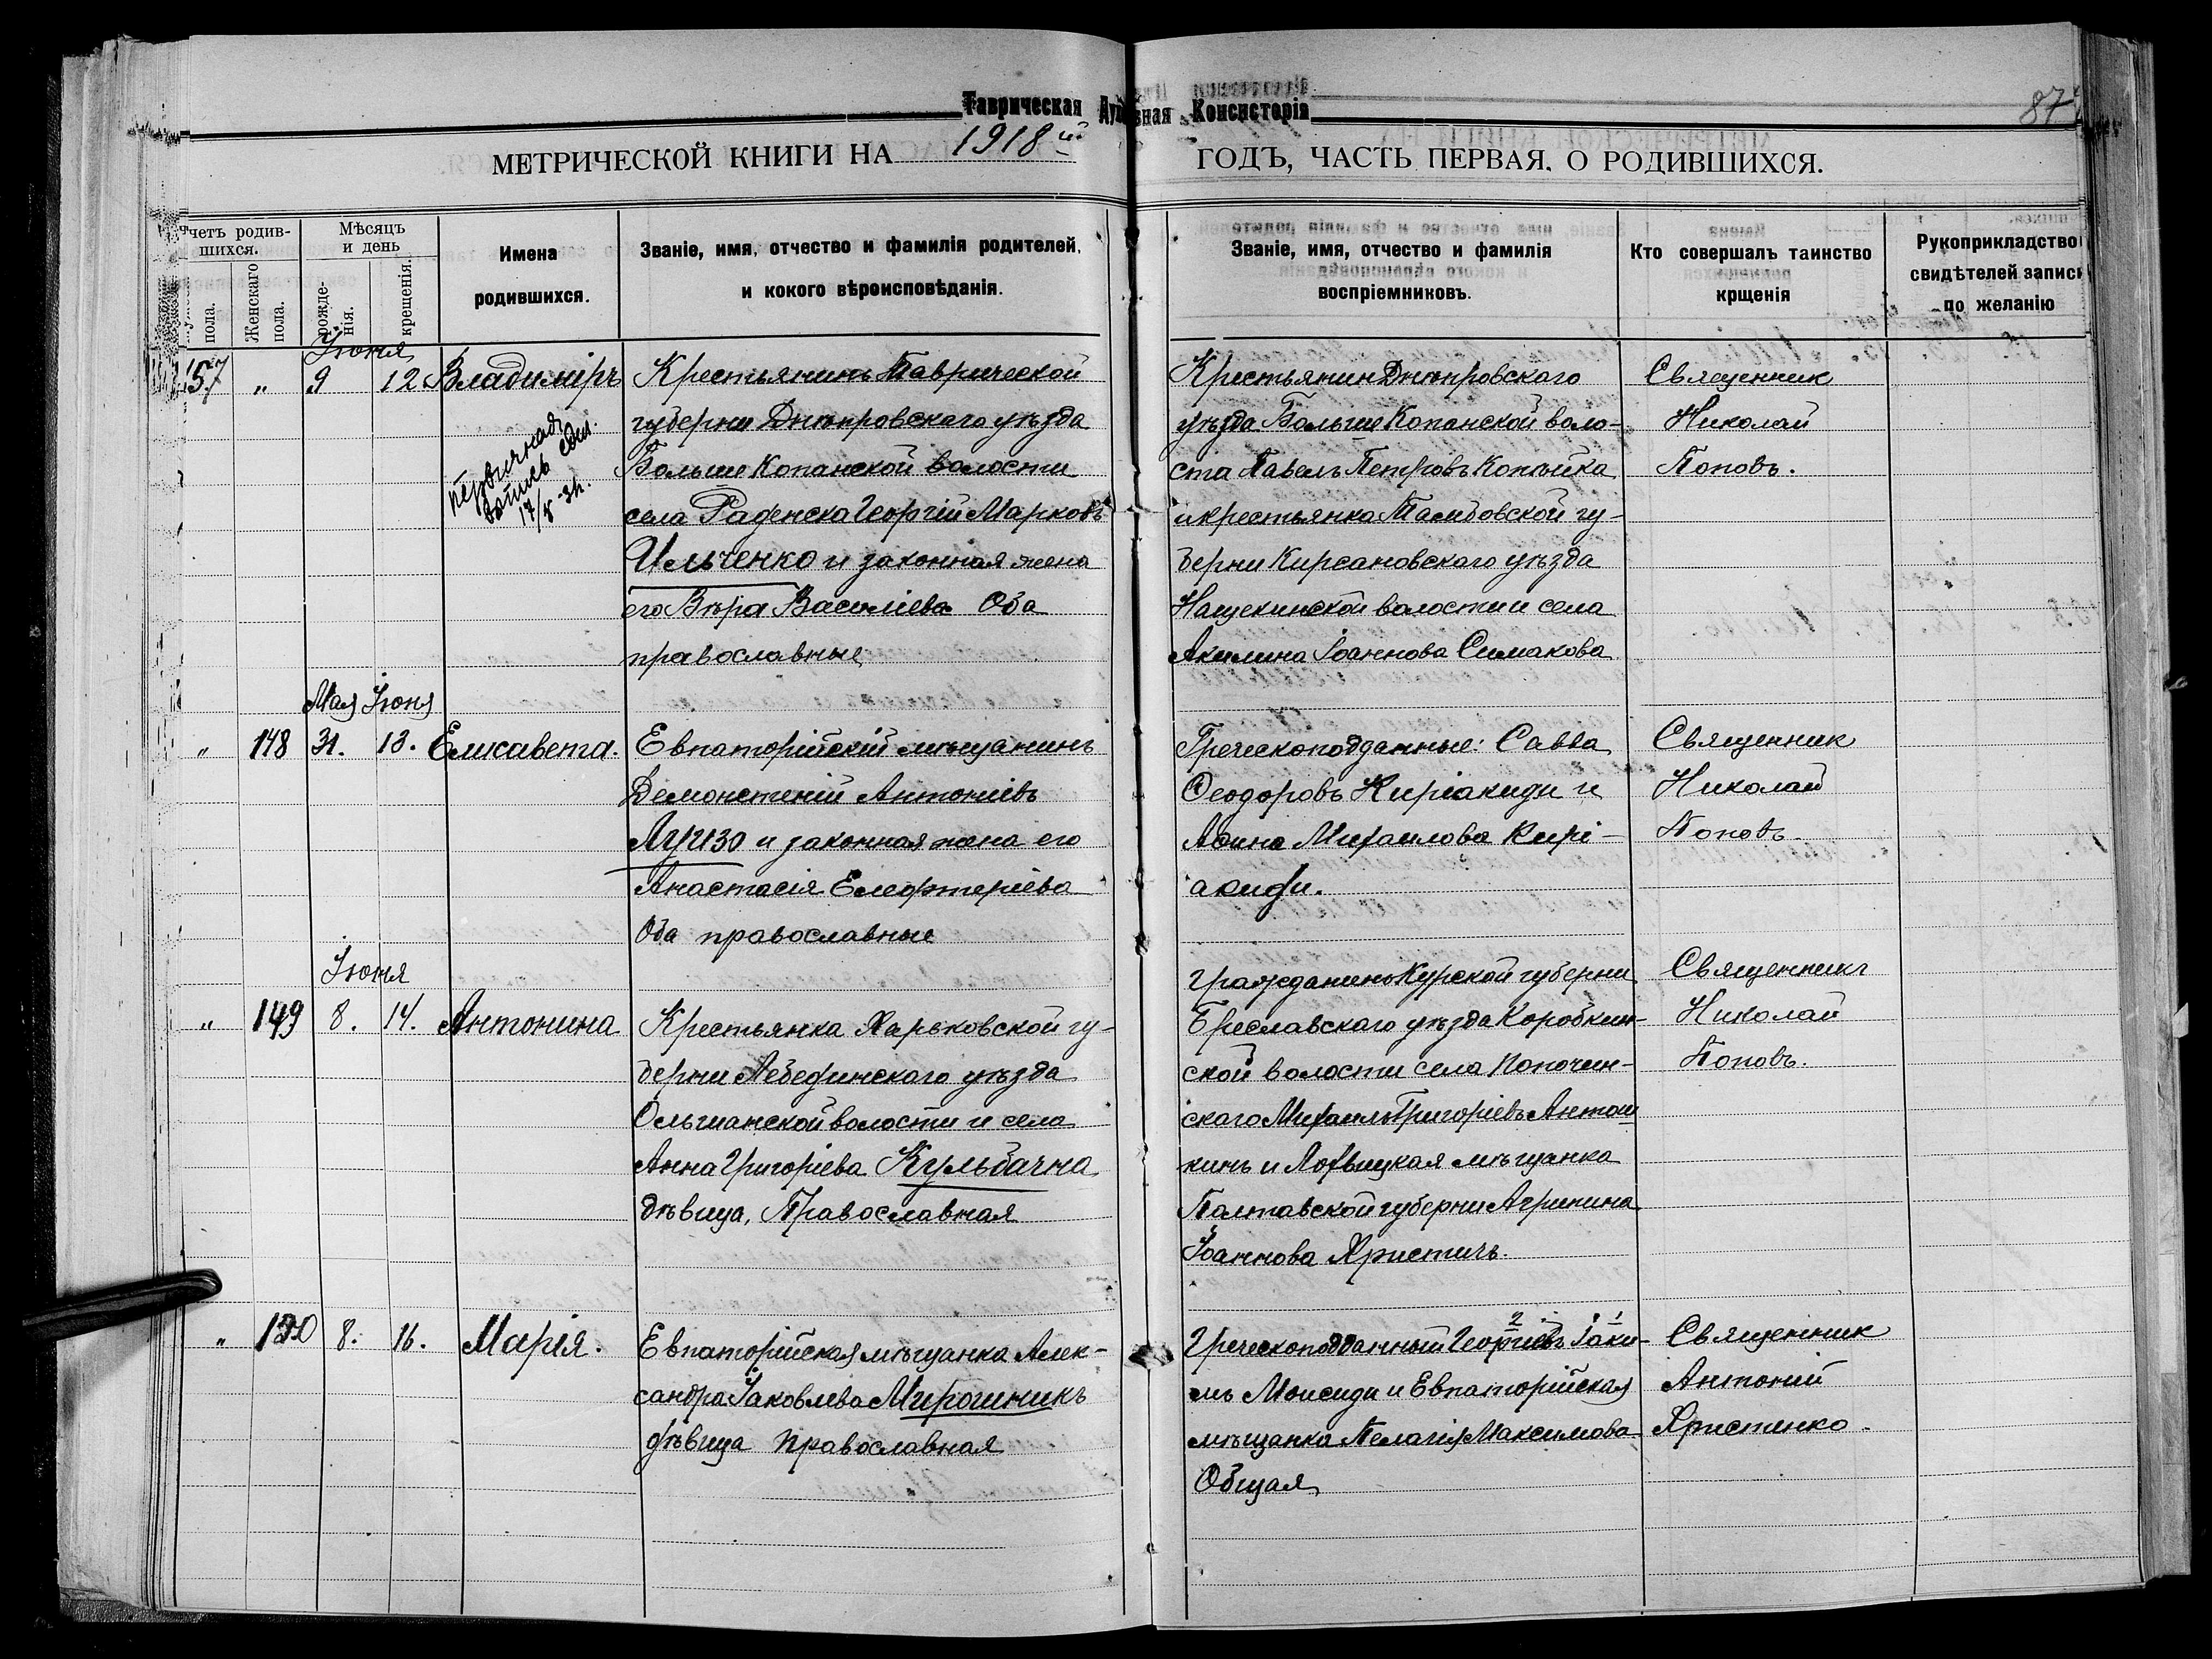 Таврическая Духовная Консисторія
87
МЕТРИЧЕСКОЙ КНИГИ НА 1918й ГОДЪ, ЧАСТЬ ПЕРВАЯ, О РОДИВШИХСЯ.
четъ родив-
шихся.
пола.
Женскаго
пола.
Мѣсяцъ
и день
рожде-
нія.
крещенія.
Имена
родившихся.
Званіе, имя, отчество и фамилія родителей,
и кокого вѣроисповѣданія.
Званіе, имя, отчество и фамилія
воспріемниковъ.
Кто совершалъ таинство
крщенія
Рукоприкладство
свидѣтелей записи
по желанію
Іюня
157 " 9 12 Владиміръ
первичная
запись
17/
Крестьянинъ Таврической
губерни Днѣпровскаго уѣзда
Больше Копанской волости
села Раденска Георгій Марковъ
Ильченко и законная жена
его Вѣра Василіева Оба
православные
Крестьянин Днѣпровскаго
уѣзда Больше Копанской воло-
сти Павелъ Петровъ Копѣйка
и крестьянка Тамбовской гу-
берни Кирсановскаго уѣзда
Нащекинской волости и села
Акилина Іоаннова Симакова
Священник
Николай
Поповъ.
Мая Іюня
" 148 31. 13. Елисавета.
Евпаторійскій мѣщанинъ
Демонстеній Антоніевъ
Агризо и законная жена его
Анастасія Елефтеріева
Оба православные
Греческоподданные: Савва
Ѳеодоровъ Киріакиди и
Аѳина Михаилова Кирі-
акиди.
Священник
Николай
Поповъ
Іюня
" 149 8. 14. Антонина
Крестьянка Харьковской гу-
берни Лебединскаго уѣзда
Ольшанской волости и села
Анна Григоріева Кульбачна
дѣвица, Православная
Гражданинъ Курской губерни
уѣзда Коробкин-
ской волости села Копочин-
скаго Михаилъ Григоріевъ Антош
кинъ и Лохвицкая мѣщанка
Полтавской губерни Агрипина
Іоаннова Христичъ.
Священникъ
Николай
Поповъ.
" 150 8. 16. Марія.
Евпаторійская мѣщанка Алек-
сандра Іаковлева Мирошникъ
дѣвица Православная
2 1
Греческоподданный Георгіевъ Іаки-
мъ Моисиди и Евпаторійская
мѣщанка Пелагія Максимова
Общая
Священник
Антоній
Христенко.